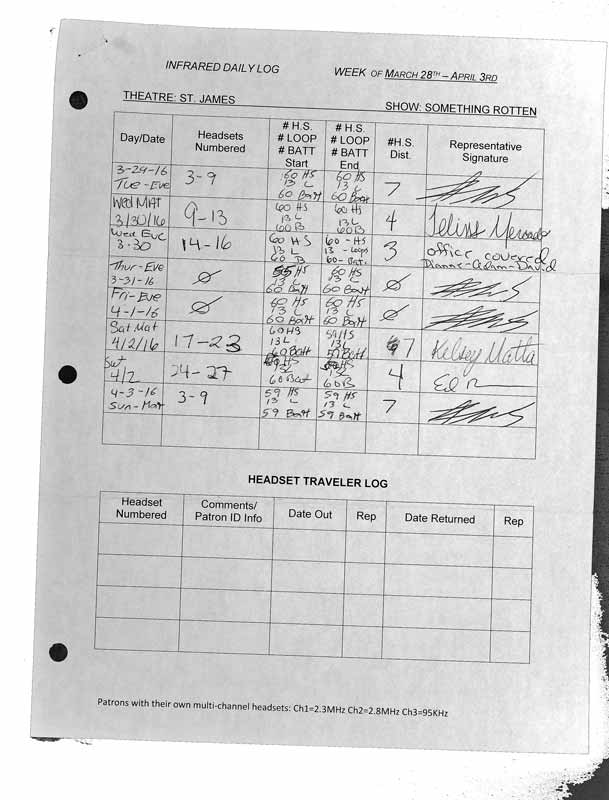 INFRARED DAILY LOG WEEK OF MARCH 28TH – APRIL 3RD
THEATRE: ST. JAMES SHOW: SOMETHING ROTTEN
Day/Date Headsets Numbered # H.S. # LOOP # BATT Start # H.S. # LOOP # BATT End #H.S. Dist. Representative Signature
3-29-16 Tue-Eve 3-9 60 HS 13 L 60 Batt 60 HS 13 L 60 Batt 7
Wed Mat 3/30/16 9-13 60 HS 13 L 60 B 60 HS 13 L 60 B 4
Wed Eve 3-30 14-16 60 HS 13 L 60 B 60 - HS 13 - Loops 60 - Bat. 3 office covered Dianne-Adam-David
Thur-Eve 3-31-16 Ø HS 13 L 60 Batt 60 HS 13 L 60 Batt Ø
Fri-Eve 4-1-16 Ø 60 HS 13 L 60 Batt 60 HS 13 L 60 Batt Ø
Sat Mat 4/2/16 17-23 60 HS 13 L 60 Batt 59 HS 13 L 59 Batt 7 Kelsey Matta
Sat 4/2 24-27 HS 13 L 60 Bat HS 13 L 60 B 4 Ed
4-3-16 Sun-Mat 3-9 59 HS 13 L 59 Batt 59 HS 13 L 59 Batt 7
HEADSET TRAVELER LOG
Headset Numbered Comments/ Patron ID Info Date Out Rep Date Returned Rep
Patrons with their own multi-channel headsets: Ch1=2.3MHz Ch2=2.8MHz Ch3=95KHz